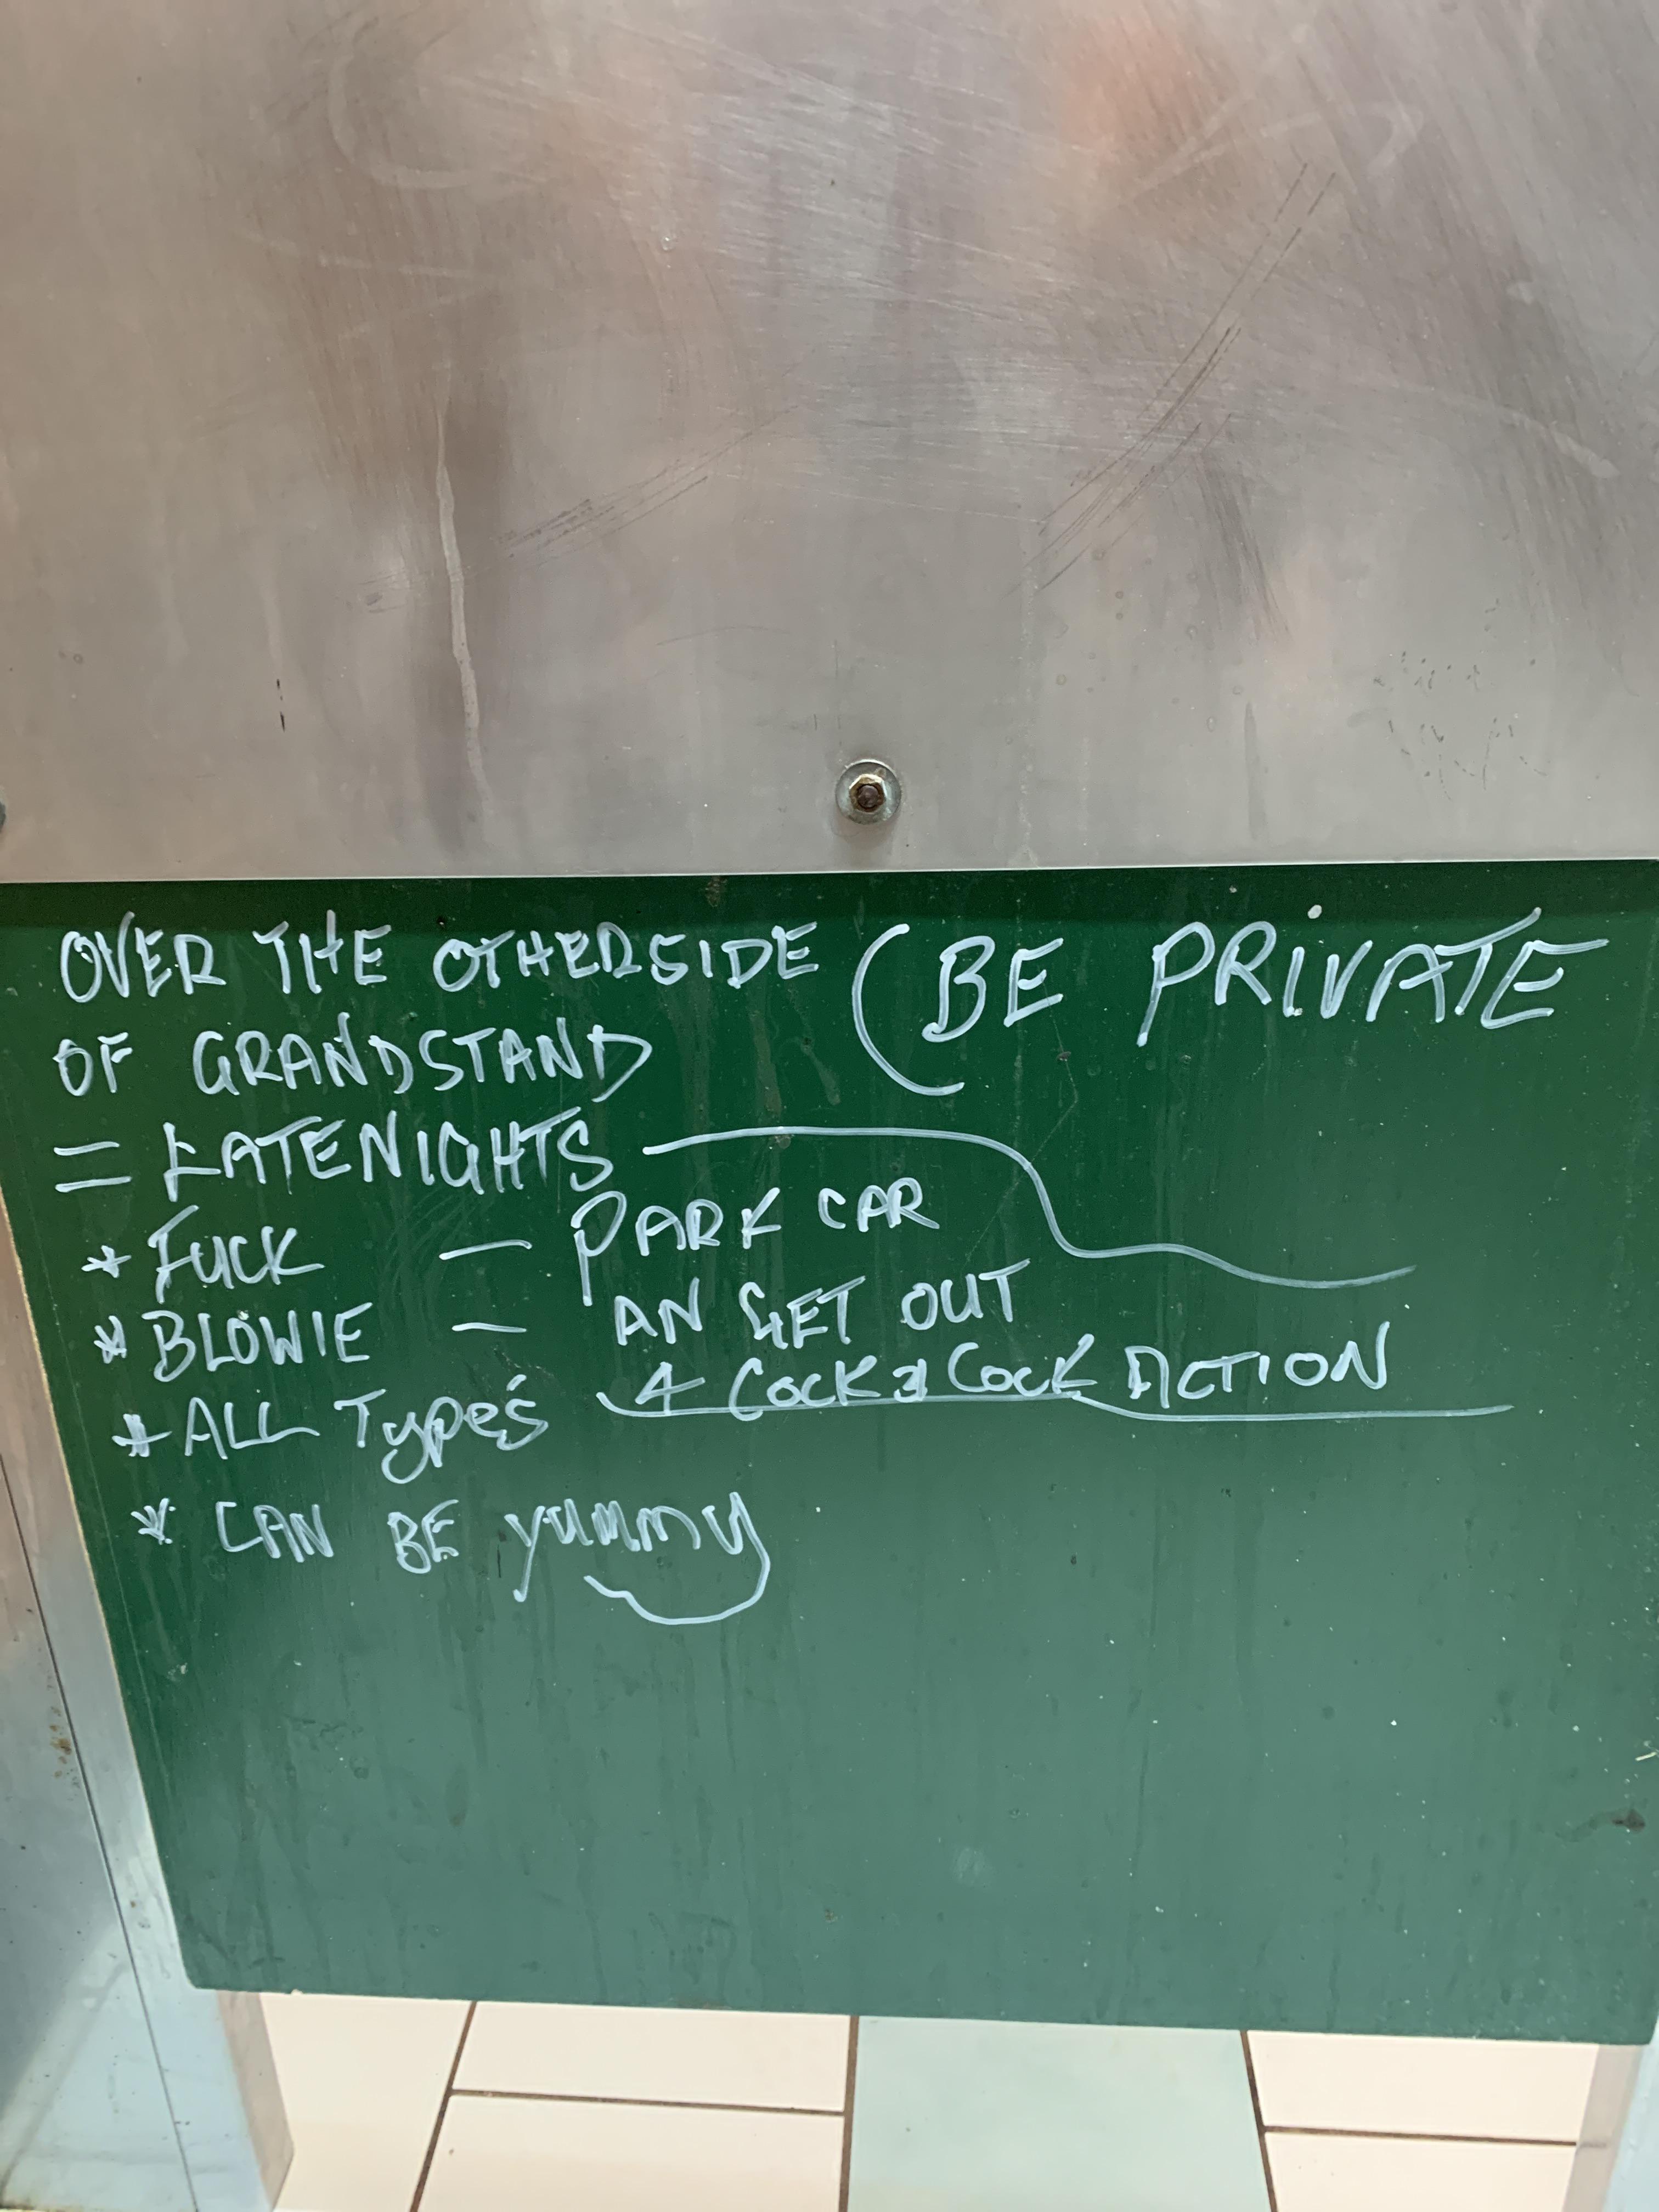 OVER THE OTHERSIDE
OF GRANDSTAND
(BE PRIVATE
= LATENIGHTS
* FUCK — PARK CAR
* BLOWIE — AN GET OUT
* ALL Type's 4 Cock 2 Cock ACTION
* CAN BE yummy